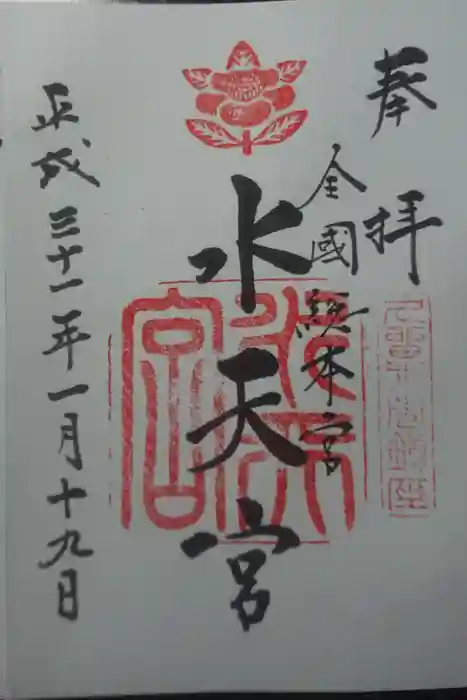 奉拝
全國総本宮
水天宮
平成三十一年一月十九日